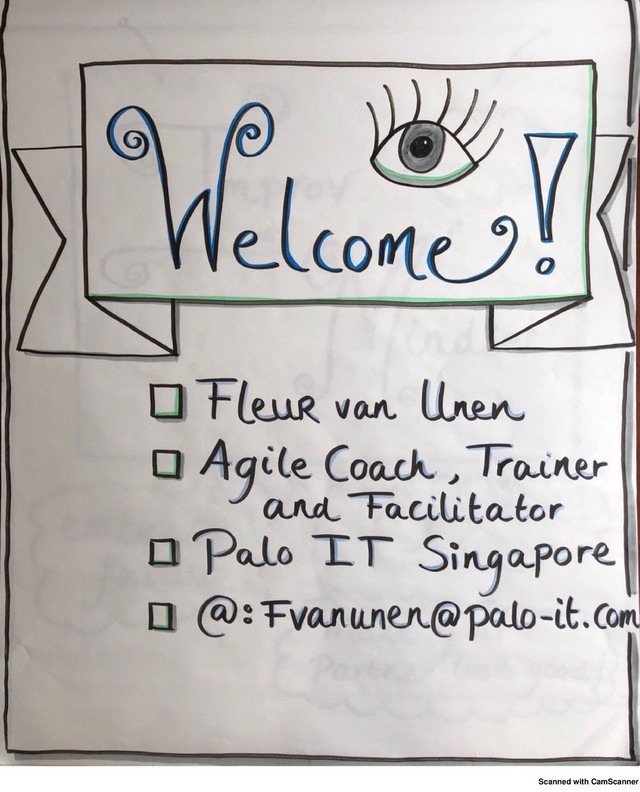 Welcome!
Fleur van Unen
Agile Coach, Trainer
and Facilitator
Palo IT Singapore
@: Fvanunen@palo-it.com
Scanned with CamScanner